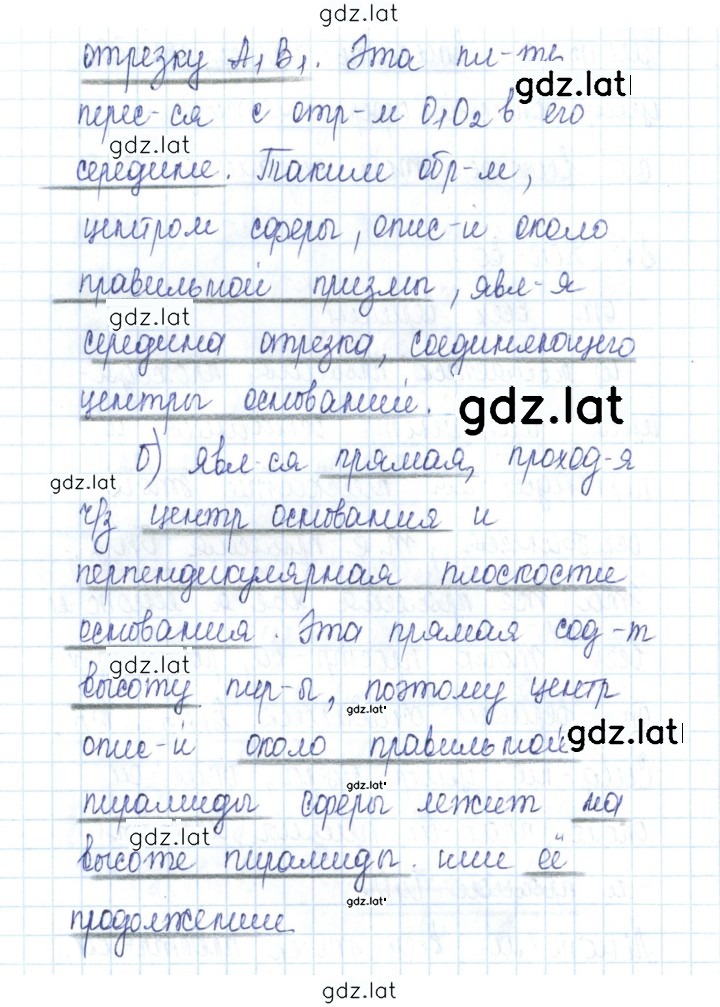 gdz.lat
отрезку A₁B₁. Эта пл-ть
gdz.lat
перес-ся с отр-м O₁O₂ в его
gdz.lat
середине. Таким обр-м,
центром сферы, опис-й около
правильной призмы, явл-я
gdz.lat
середина отрезка, соединяющего
центры оснований.
gdz.lat
б) явл-ся прямая, проход-я
gdz.lat
ч/з центр основания и
перпендикулярная плоскости
основания. Эта прямая сод-т
gdz.lat
высоту пир-ы, поэтому центр
gdz.lat
опис-й около правильной
gdz.lat
gdz.lat
пирамиды сферы лежит на
gdz.lat
высоте пирамиды или её
gdz.lat
продолжении
gdz.lat